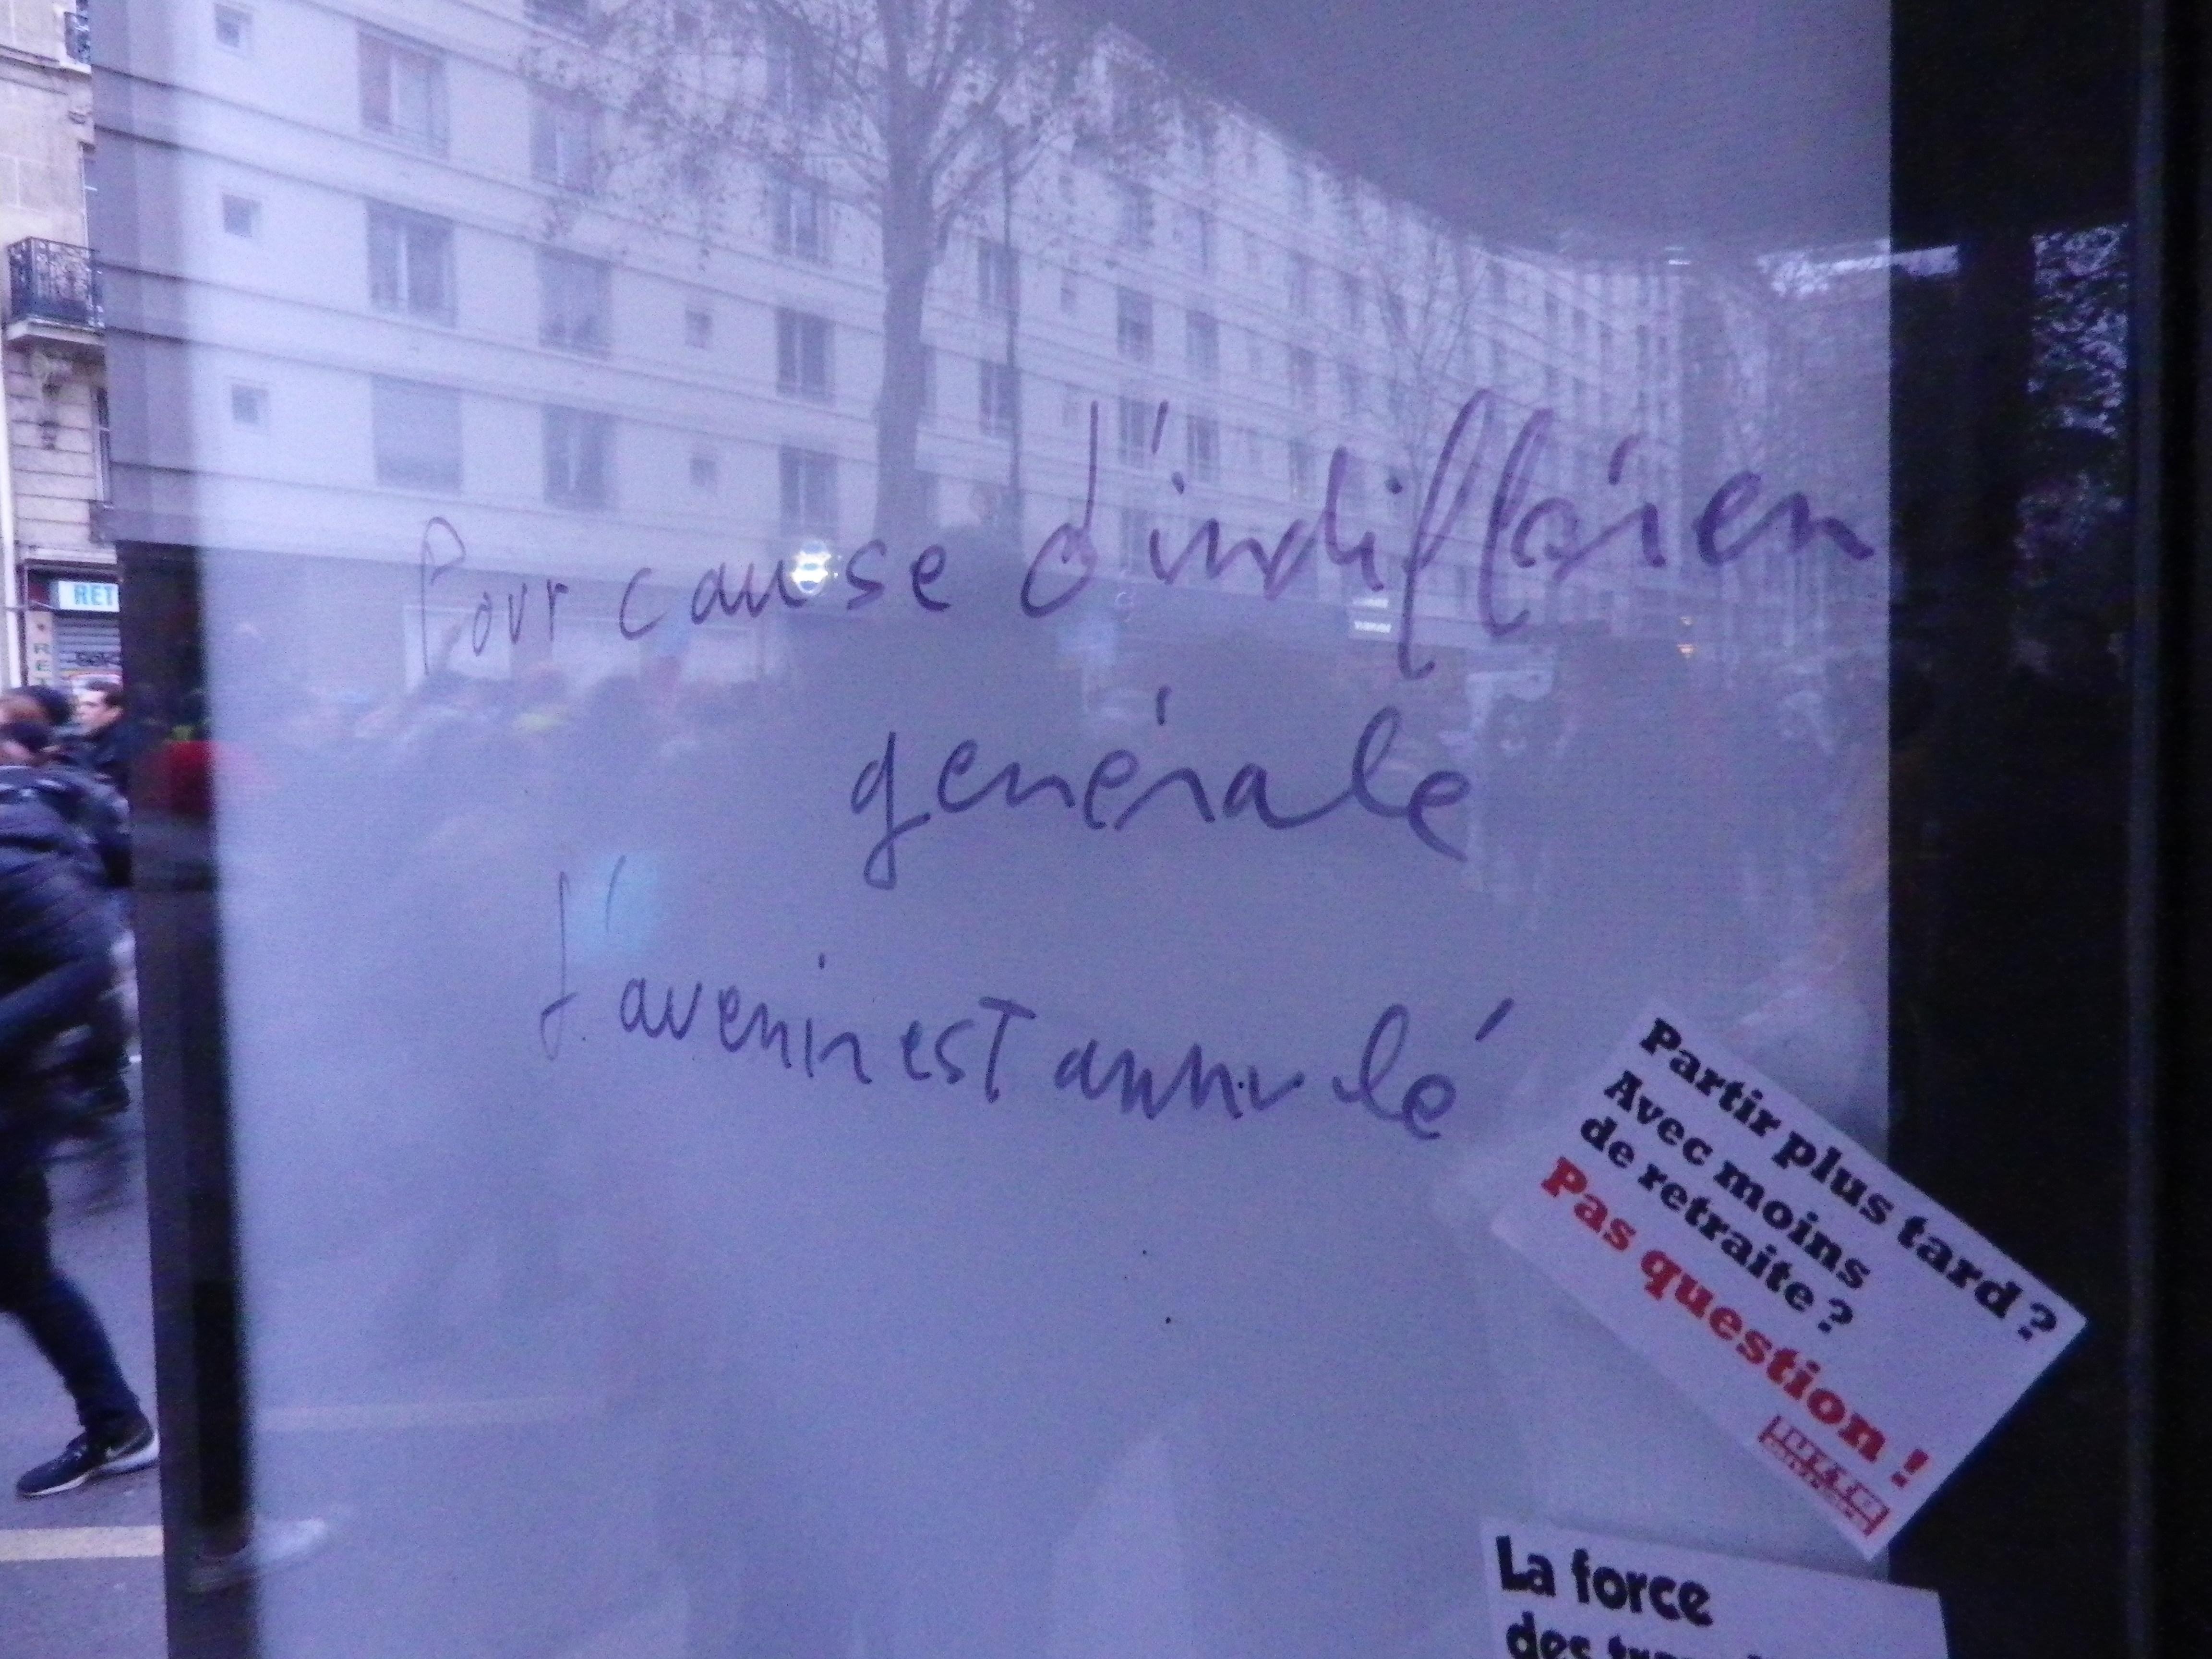 Pour cause d'indifféren
générale
l'avenir est annulé
Partir plus tard ?
Avec moins
de retraite ?
Pas question !
La force
des
RET